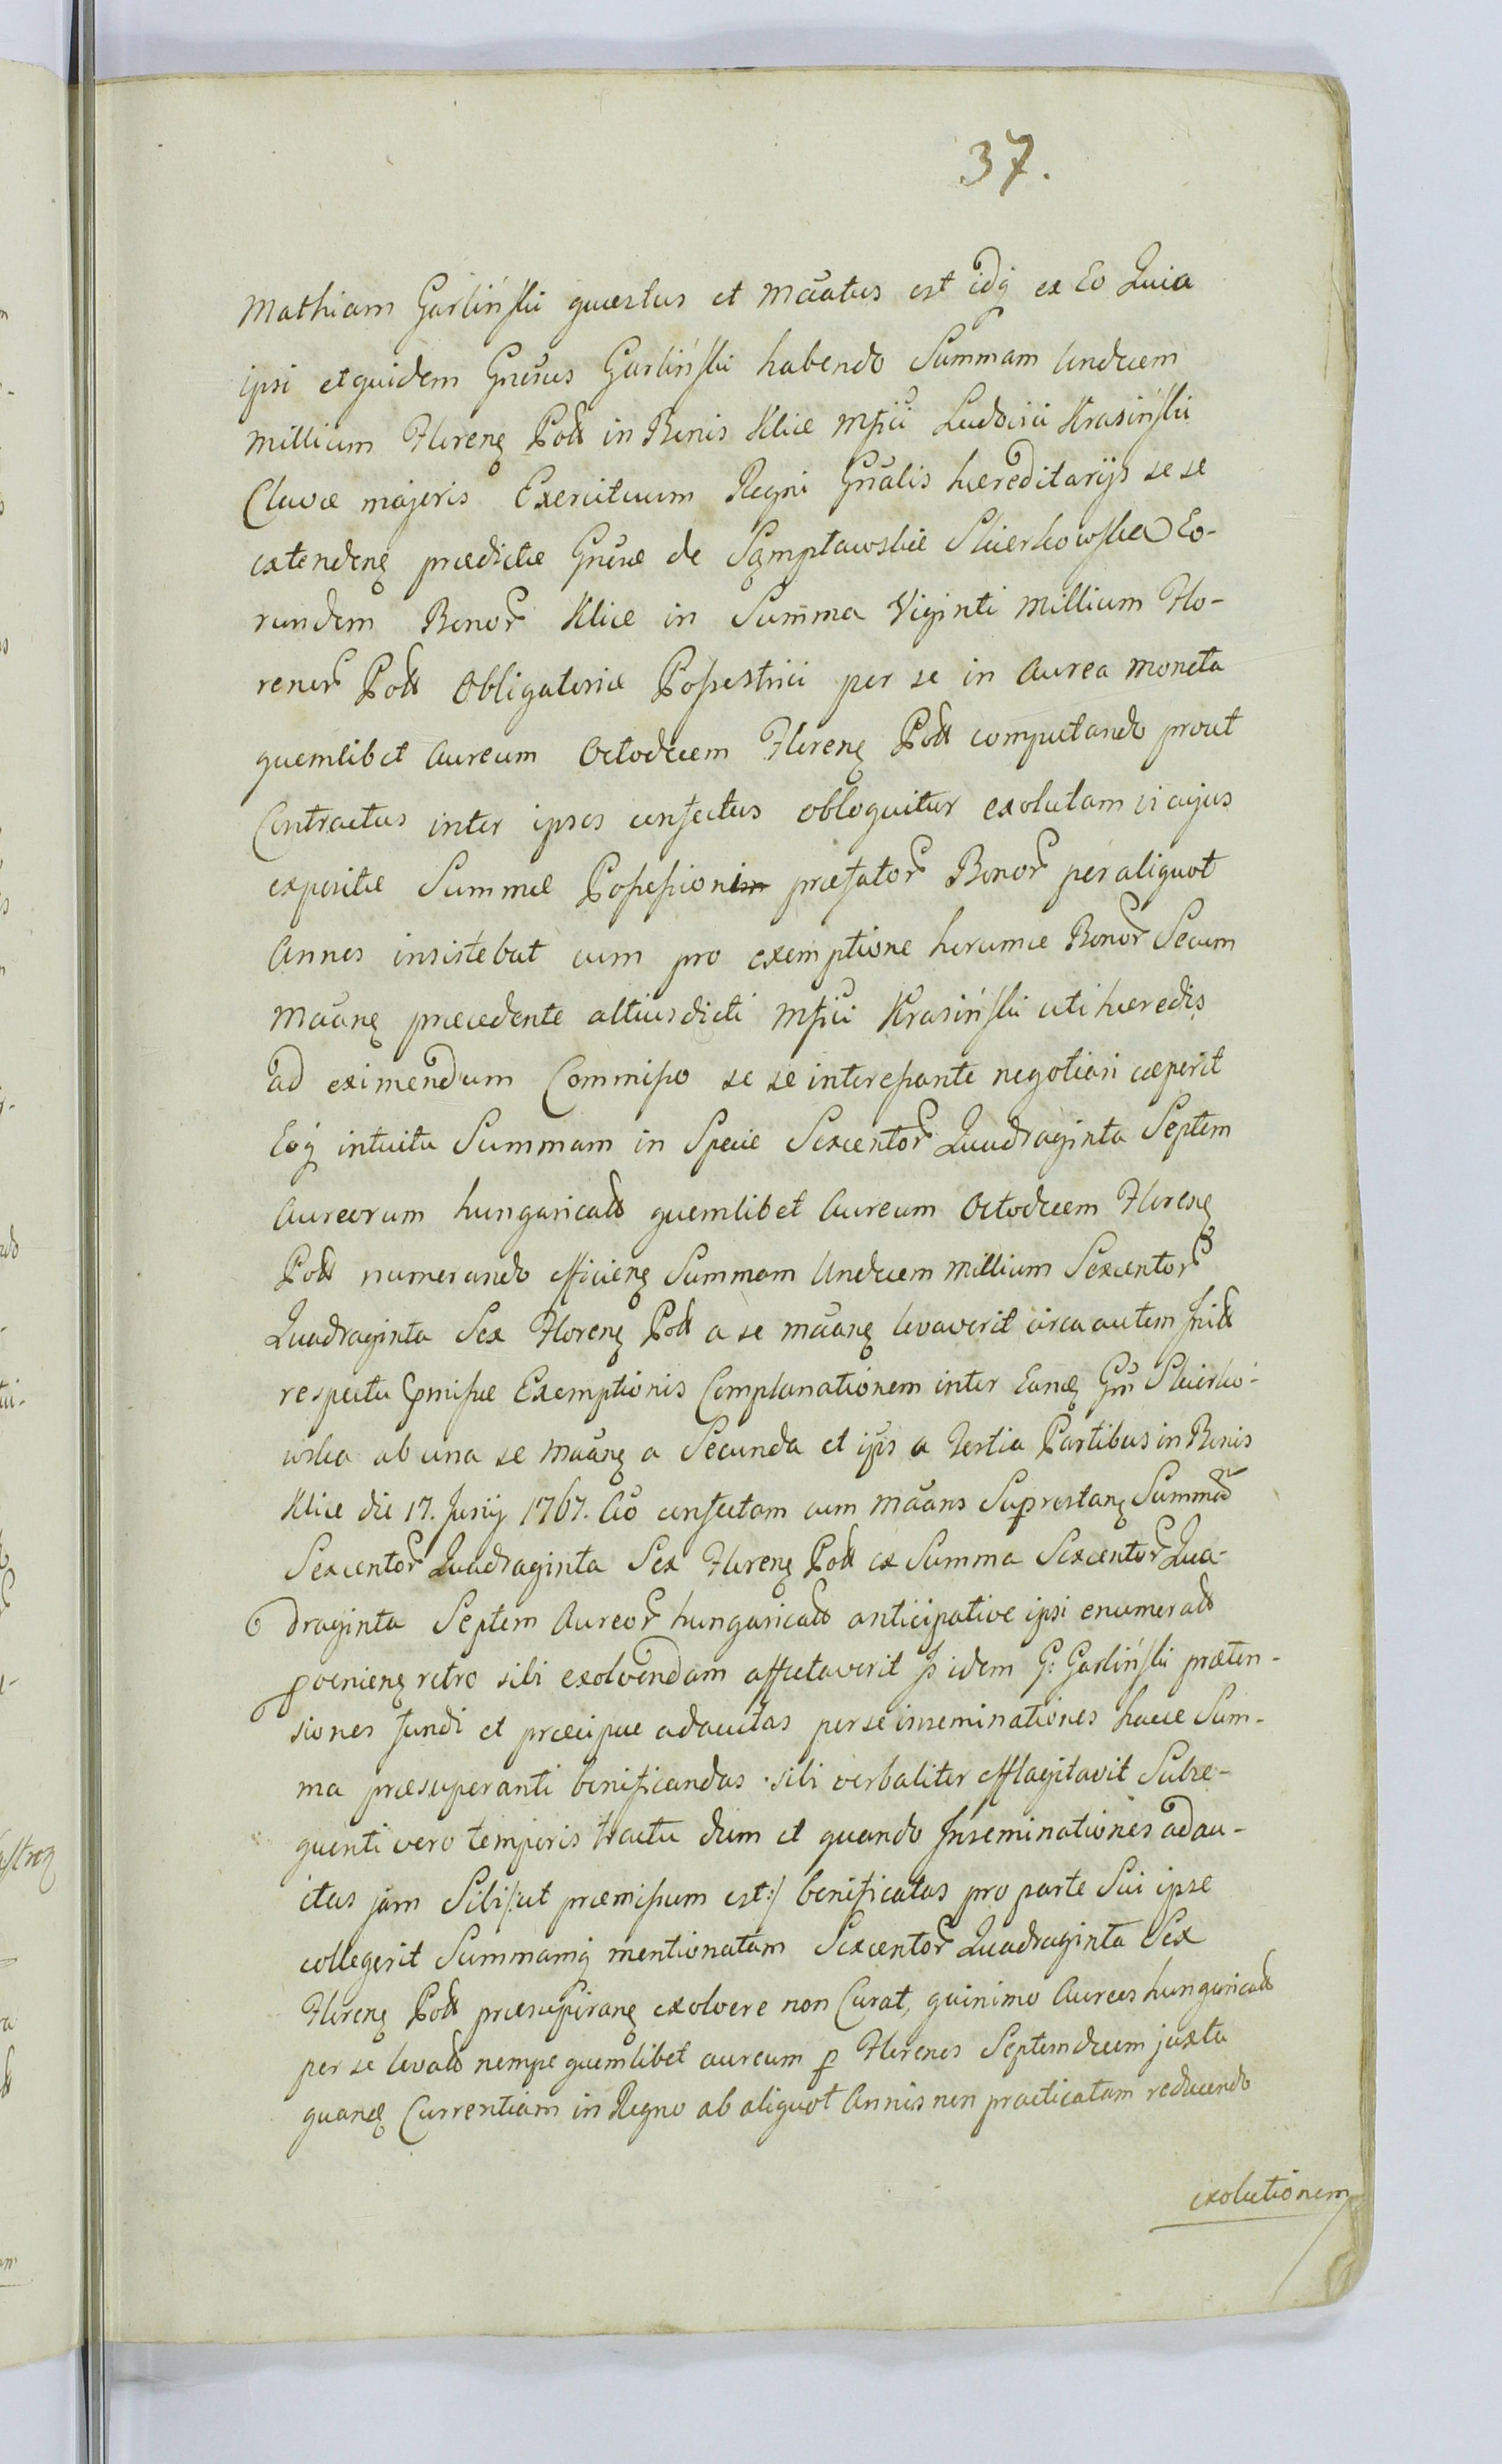 37.
Mathiam Garlińſki quæstus et Mãatus est idq̃ ex Eo Quia
ipsi etquidem Gnẽsus Garlińſki habendo Summam Undecem
millium Florenꝫ Poll in Bonis Klice Mfici Ludovici Krasińſki
Clavæ majoris Exercituum Regni Gñalis hæreditarijs se se
extendenꝫ prædictæ Gnẽsæ de Sąmpławskie Skierkowſka Eo-
rundem Bonoꝝ Klice in Summa Viginti Millium Flo-
renoꝝ Poll Obligatoriæ Poſseſtrici per se in Aurea Moneta
quemlibet Aureum Octodecem Florenꝫ Poll computando prout
Contractus inter ipsos confectus obloquitur exolutam vi cujus
expositæ Summæ Poſseſsionim præfatoꝝ Bonoꝝ per aliquot
Annos insistebat cum pro exemptione horumce Bonoꝝ Secum
Mãanꝫ præcedente altiusdicti Mfici Krasińſki uti hæredis
ad eximendum Commiſso se se intereſsante negotiari cæperit
Eoq̃ intuitu Summam in Specie Sexcentoꝝ Quadraginta Septem
Aureorum hungaricall quemlibet Aureum Octodecem Florenꝫ
Poll numerando efficienꝫ Summam Undecem Millium Sexcentoꝝ
Quadraginta Sex Florenꝫ Poll a se mãanꝫ levaverit circa autem
respectu p̱miſsæ Exemptionis Complanationem inter Eanꝫ Gñ Skierko-
wska ab una se Mãanꝫ a Secunda et ip̃is a Tertia Partibus in Bonis
Klice die 17. Junij 1767. Aõ confectam cum Mãans Sup̱restanꝫ Summã
Sexcentoꝝ Quadraginta Sex Florenꝫ Poll ex Summa Sexcentoꝝ Qua-
draginta Septem Aureoꝝ hungaricall anticipative ipsi enumerall
ꝓvenienꝫ retro sibi exolvendam affectaverit idem G: Garlińſki præten-
siones fundi et præcipue adauctas per se inseminationes hacce Sum-
ma præsuperanti bonificandas sibi verbaliter efflagitavit Subse-
quenti vero temporis tractu dum et quando Inseminationes adau-
ctas jam Sibi /:ut præmiſsum est:/ bonificatas pro parte Sui ipse
collegerit Summamq̃ mentionatam Sexcentoꝝ Quadraginta Sex
Florenꝫ Poll præsuperanꝫ exolvere non Curat, quinimo Aureos hungaricall
per se levall nempe quemlibet aureum ꝑ Florenos Septemdecem juxta
quanꝫ Currentiam in Regno ab aliquot Annis non practicatam reducendo
exolutionem